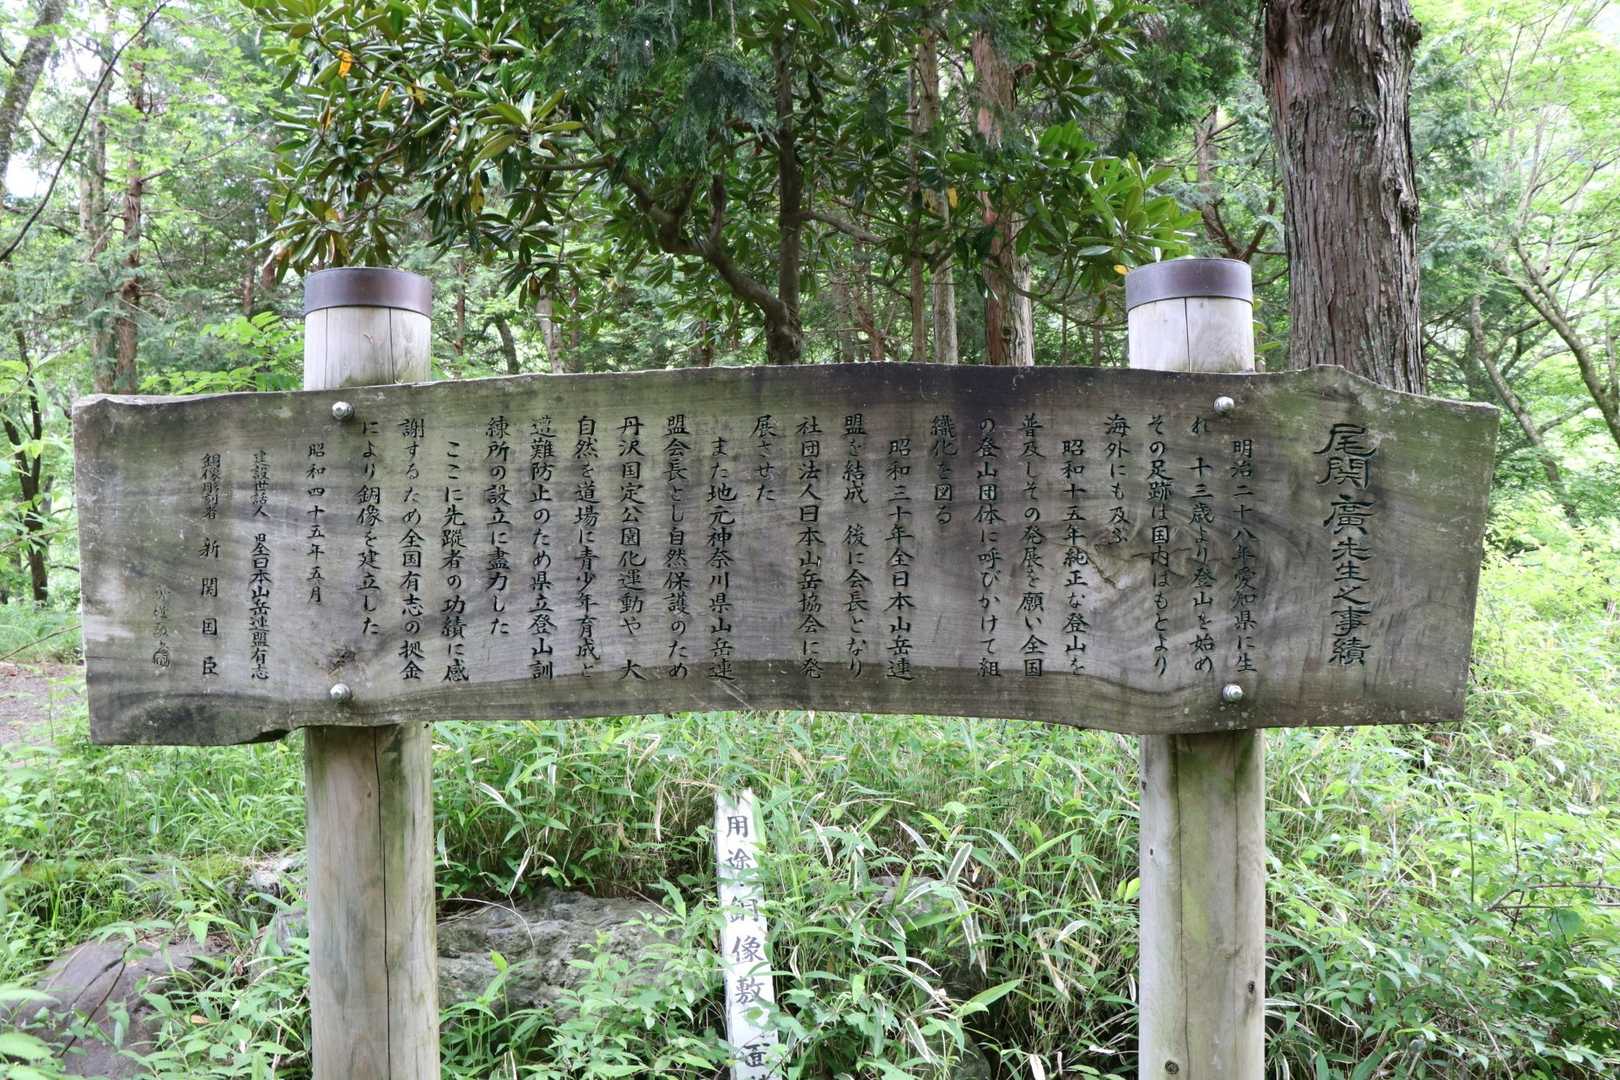 尾関廣先生之事績
明治二十八年愛知県に生
れ 十三歳より登山を始め
その足跡は国内はもとより
海外にも及ぶ
昭和十五年純正な登山を
普及しその発展を願い全国
の登山団体に呼びかけて組
織化を図る
昭和三十年全日本山岳連
盟を結成 後に会長となり
社団法人日本山岳協会に発
展させた
また地元神奈川県山岳連
盟会長とし自然保護のため
丹沢国定公園化運動や 大
自然を道場に青少年育成と
遭難防止のため県立登山訓
練所の設立に盡力した
ここに先蹤者の功績に感
謝するため全国有志の拠金
により銅像を建立した
昭和四十五年五月
建設世話人 全日本山岳連盟有志
銅像彫刻者 新関国臣
用途銅像敷